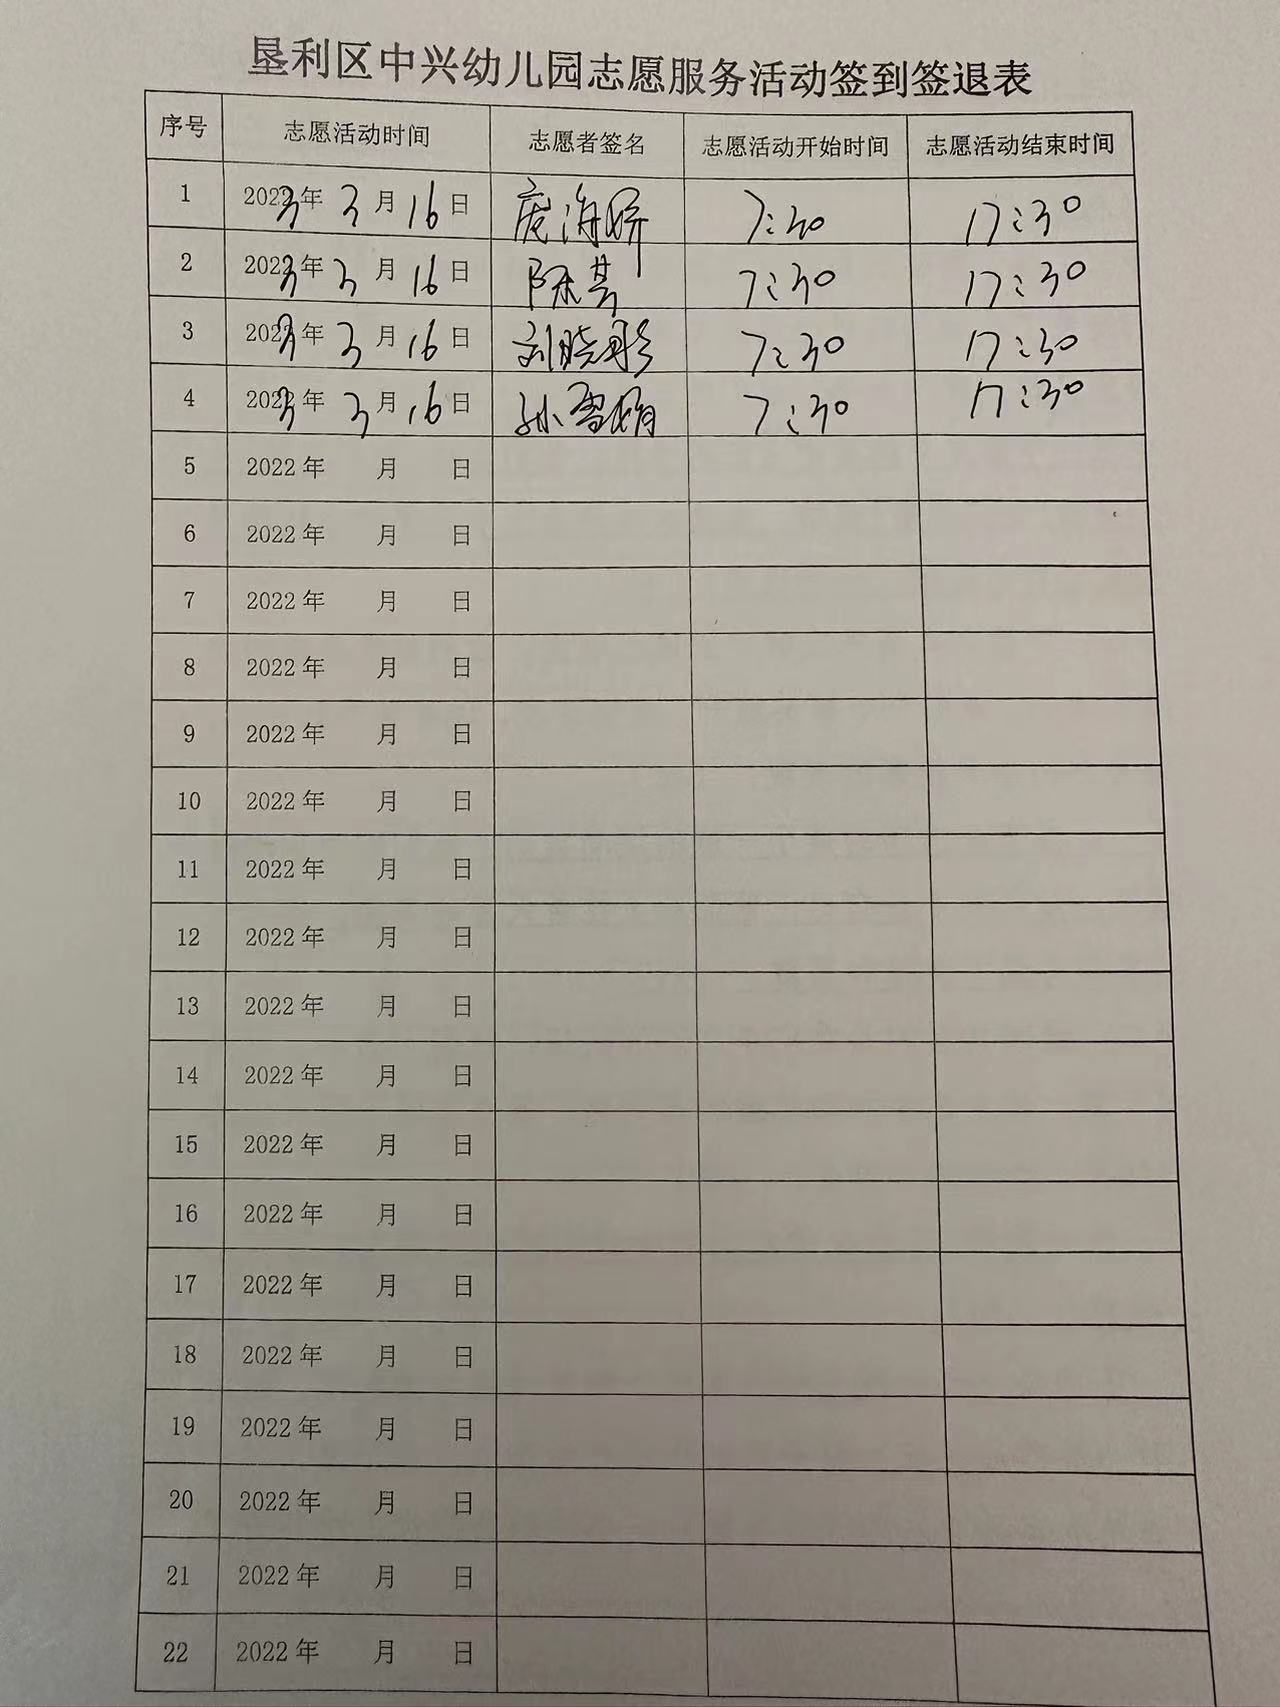 垦利区中兴幼儿园志愿服务活动签到签退表
序号 志愿活动时间 志愿者签名 志愿活动开始时间 志愿活动结束时间
1 2023年 3月16日 庞海娇 7:30 17:30
2 2023年 3月16日 陈芸 7:30 17:30
3 2023年 3月16日 刘晓彤 7:30 17:30
4 2023年 3月16日 孙雪娟 7:30 17:30
5 2022年 月 日
6 2022年 月 日
7 2022年 月 日
8 2022年 月 日
9 2022年 月 日
10 2022年 月 日
11 2022年 月 日
12 2022年 月 日
13 2022年 月 日
14 2022年 月 日
15 2022年 月 日
16 2022年 月 日
17 2022年 月 日
18 2022年 月 日
19 2022年 月 日
20 2022年 月 日
21 2022年 月 日
22 2022年 月 日